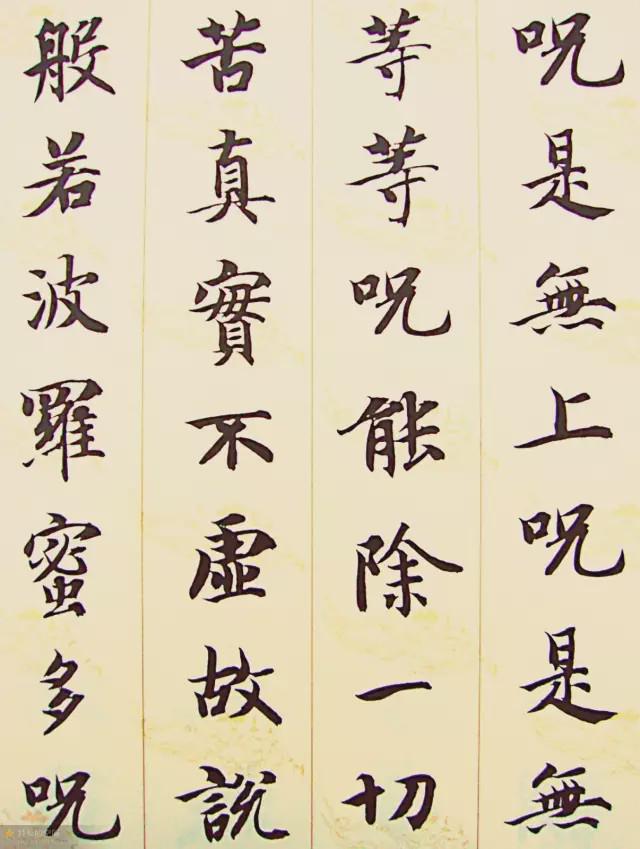 呪是無上呪是無
等等呪能除一切
苦真實不虛故說
般若波羅蜜多呪